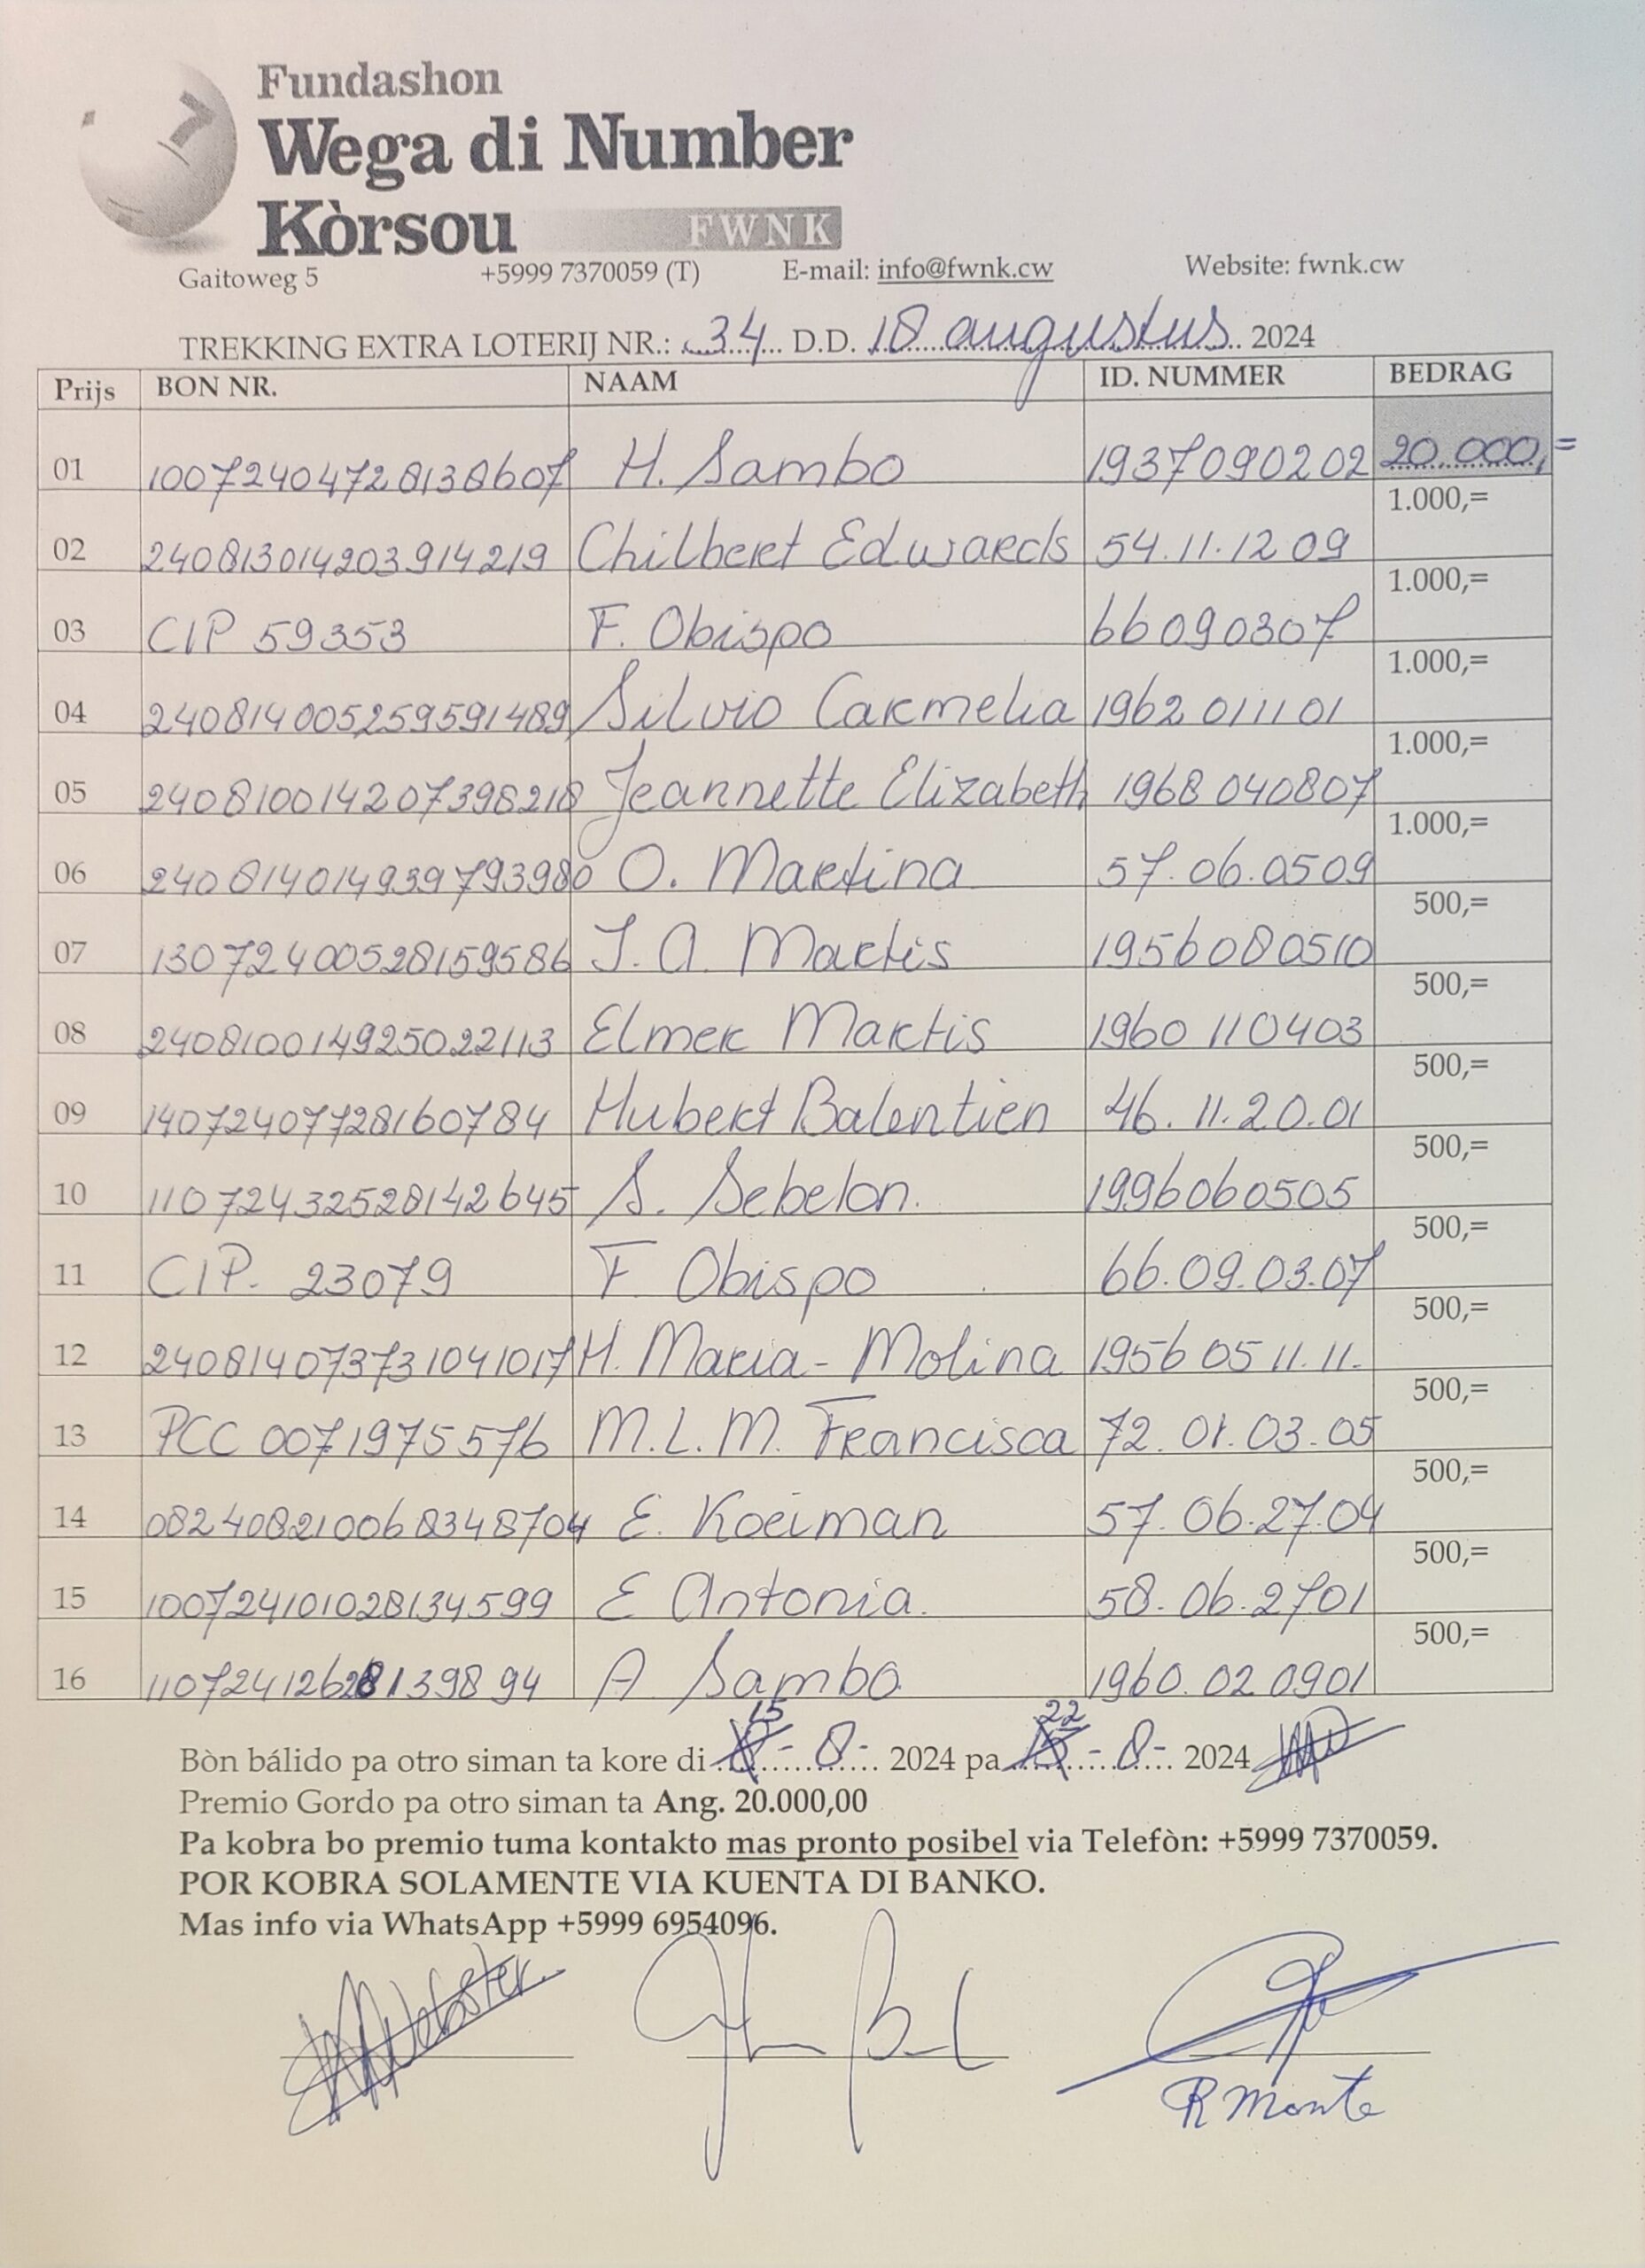 Fundashon
Wega di Number
Kòrsou FWNK
Gaitoweg 5 +5999 7370059 (T) E-mail: info@fwnk.cw Website: fwnk.cw
TREKKING EXTRA LOTERIJ NR.: 34 D.D. 18 augustus 2024
Prijs BON NR. NAAM ID. NUMMER BEDRAG
01 10072404728138607 H. Sambo 1937090202 20.000,=
02 240813014203914219 Chilbert Edwards 54.11.12 09 1.000,=
03 CIP 59353 F. Obispo 66090307 1.000,=
04 240814005259591489 Silvio Carmelia 1962 011101 1.000,=
05 240810014207398218 Jeannette Elizabeth 1968 040807 1.000,=
06 240814014939793980 O. Martina 57.06.0509 1.000,=
07 13072400528159586 J. A. Martis 1956080510 500,=
08 240810014925022113 Elmer Martis 1960 110403 500,=
09 14072407728160784 Hubert Balentien 46.11.20.01 500,=
10 11072432528142645 S. Sebelon. 1996060505 500,=
11 CIP. 23079 F Obispo 66.09.03.07 500,=
12 240814073731041017 H. Maria-Molina 1956 05 11.11. 500,=
13 PCC 0071975576 M.L.M. Francisca 72.01.03.05 500,=
14 082408210068348704 E. Koeiman 57.06.27.04 500,=
15 100724101028134599 E Antonia. 58.06.2701 500,=
16 11072412628139894 A Sambo 1960.02 0901 500,=
Bòn bálido pa otro siman ta kore di 15-8- 2024 pa 22-8- 2024
Premio Gordo pa otro siman ta Ang. 20.000,00
Pa kobra bo premio tuma kontakto mas pronto posibel via Telefòn: +5999 7370059.
POR KOBRA SOLAMENTE VIA KUENTA DI BANKO.
Mas info via WhatsApp +5999 6954096.
Webster
R Monte